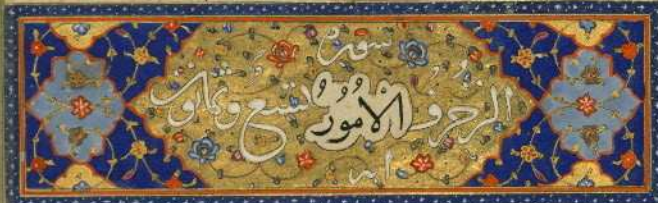 سوره
الزخرف الامور تسع وثمانون
ايه